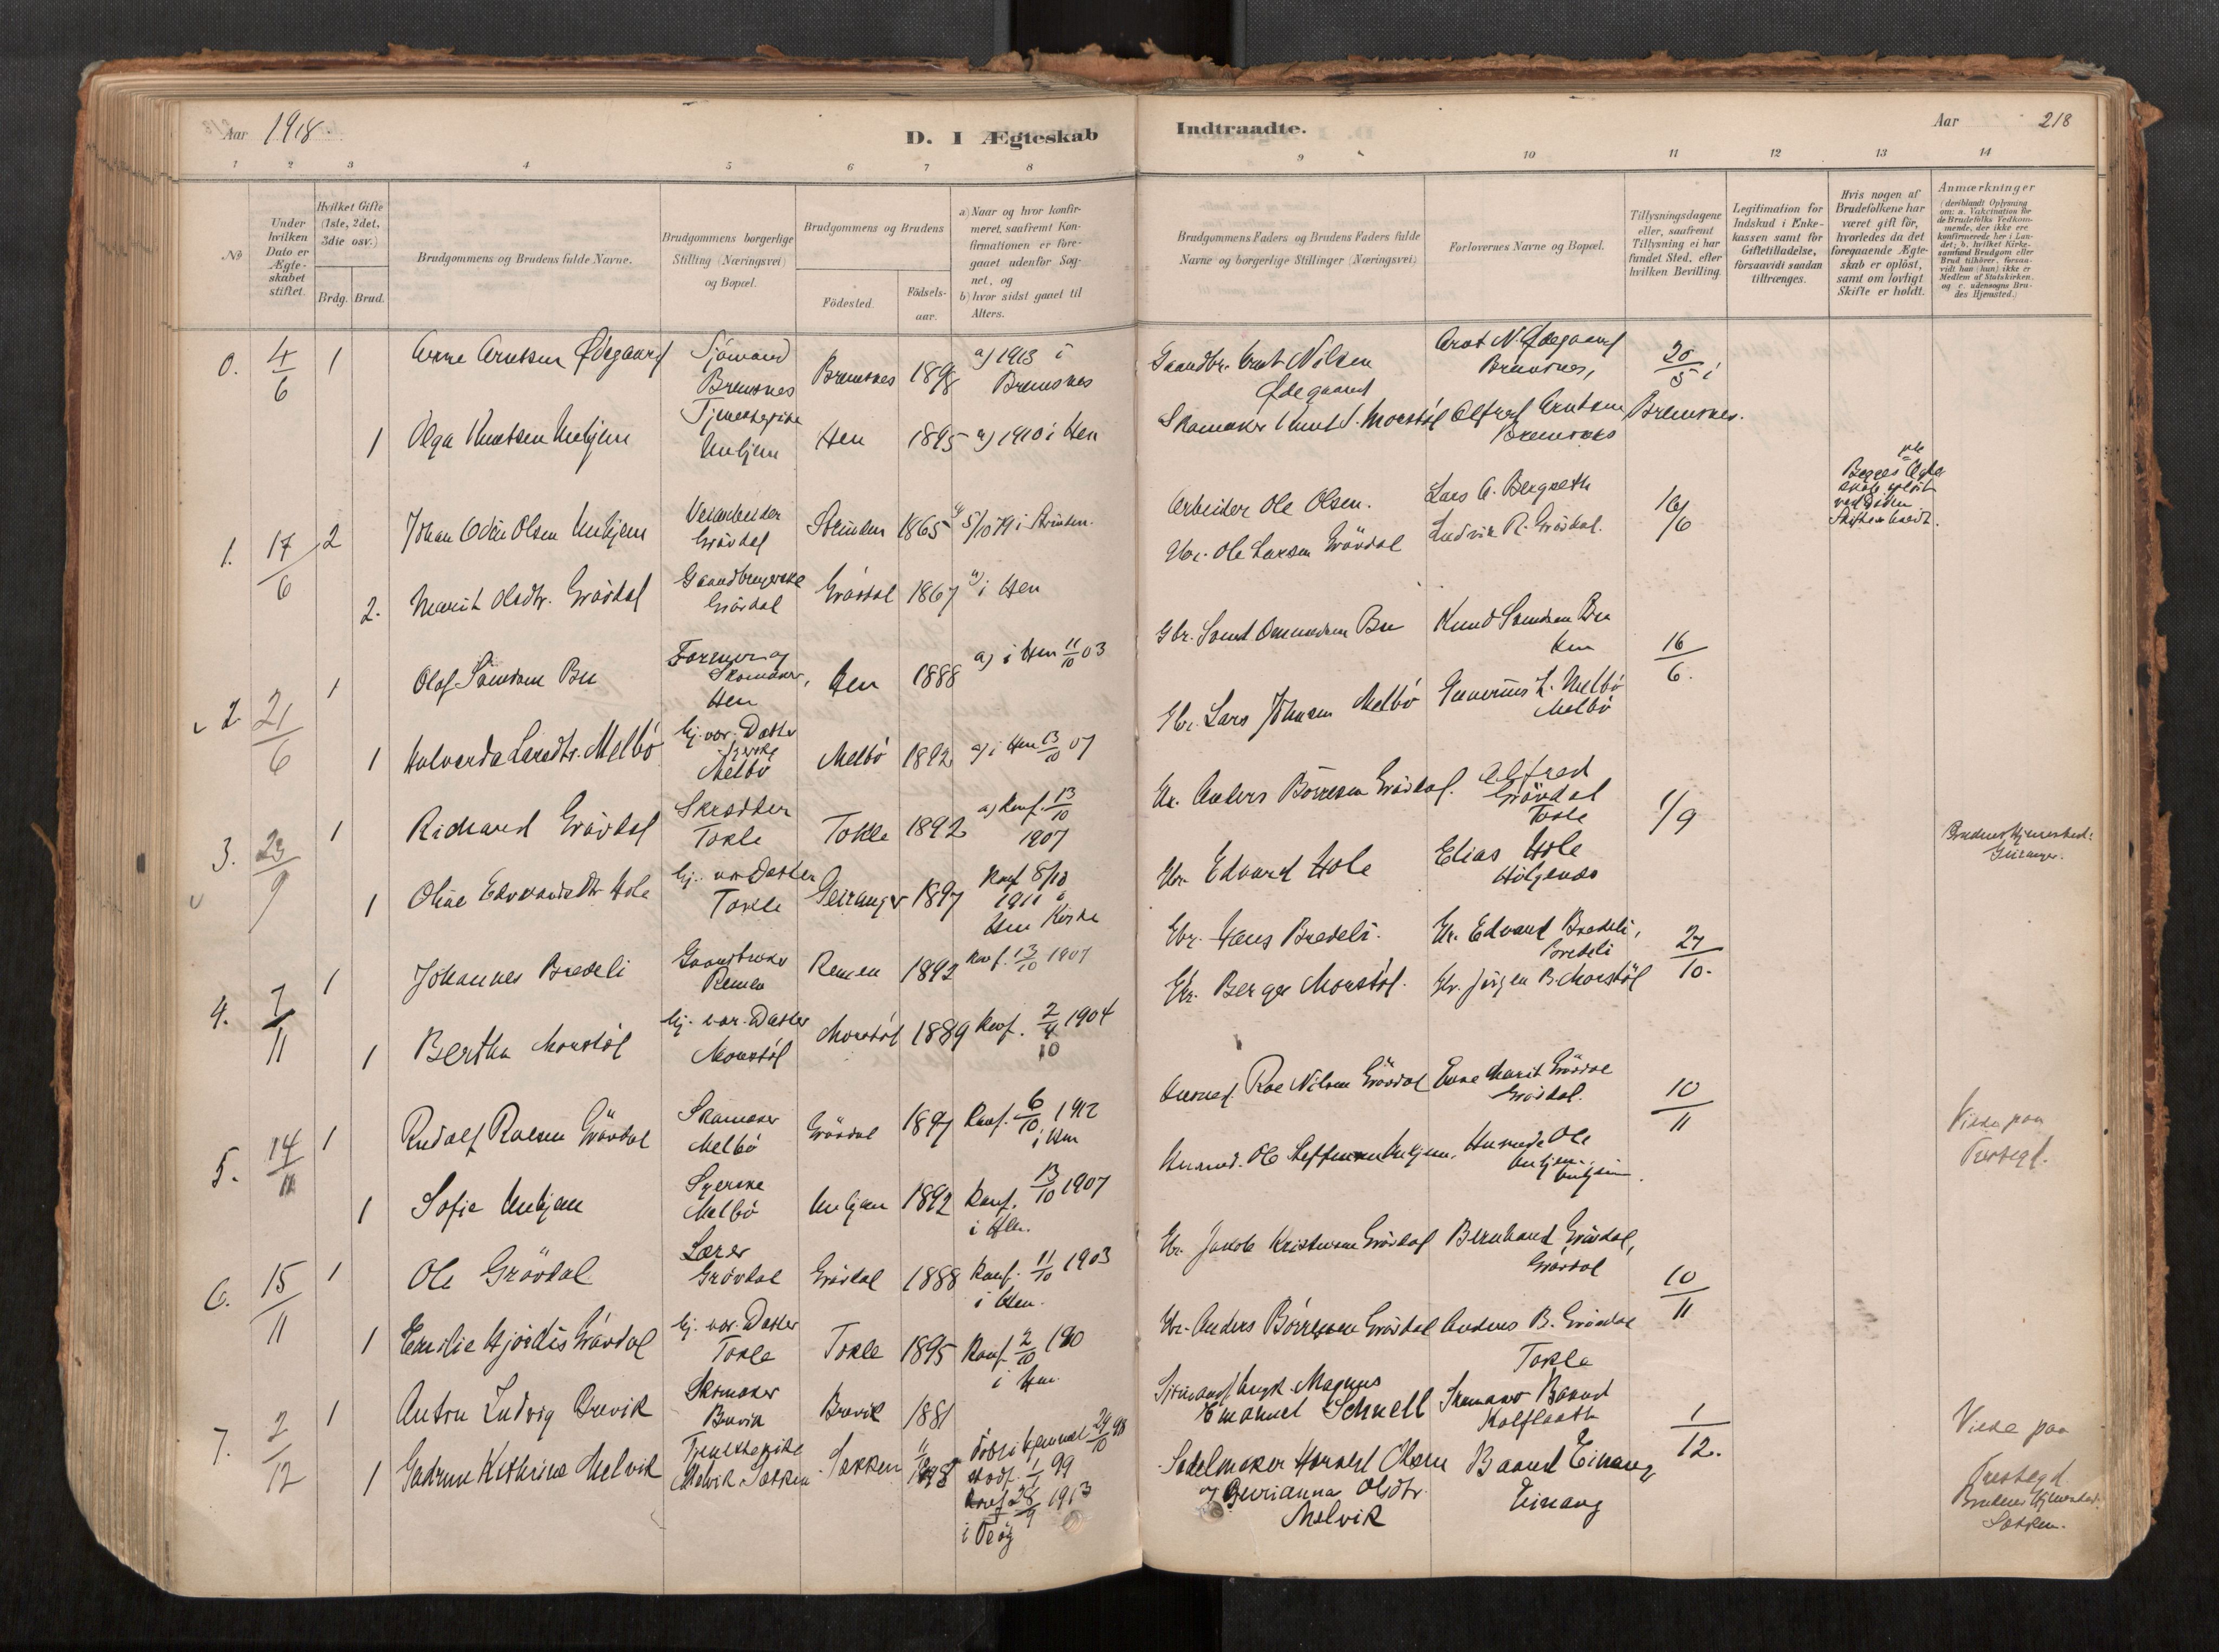 Aar 1918
D. I Ægteskab
Indtraadte.
Aar 218
1 2 3 4 5 6 7 8 9 10 11 12 13 14
No
Under hvilken Dato er Ægteskabet stiftet.
Hvilket Gifte (1ste, 2det, 3die osv.)
Brdg. Brud.
Brudgommens og Brudens fulde Navne.
Brudgommens borgerlige Stilling (Næringsvei) og Bopæl.
Brudgommens og Brudens
Födested.
Födsels-aar.
a) Naar og hvor konfirmeret, saafremt Konfirmationen er foregaaet udenfor Sognet, og
b) hvor sidst gaaet til Alters.
Brudgommens Faders og Brudens Faders fulde Navne og borgerlige Stillinger (Næringsvei)
Forlovernes Navne og Bopæl.
Tillysningsdagene eller, saafremt Tillysning ei har fundet Sted, efter hvilken Bevilling.
Legitimation for Indskud i Enkekassen samt for Giftetilladelse, forsaavidt saadan tiltrænges.
Hvis nogen af Brudefolkene har været gift för, hvorledes da det foregaaende Ægteskab er oplöst, samt om lovligt Skifte er holdt.
Anmærkninger
(deriblandt Oplysning om: a. Vakcination for de Brudefolks Vedkommende, der ikke ere konfirmerede her i Landet; b. hvilket Kirkesamfund Brudgom eller Brud tilhörer, forsaavidt han (hun) ikke er Medlem af Statskirken, og c. udensogns Brudes Hjemsted.)
0. 4/6 1 Arne Arntsen Ødegaard Sjömand Bremsnes Bremsnes 1898 a) 1913 i Bremsnes
Gaardbr. Arnt Nilsen Ødegaard Arnt N. Ødegaard Bremsnes, 20/5 i Bremsnes.
1 Olga Knutsen Unhjem Tjenestepike Unhjem Hen 1895 a) 1910 i Hen
Skomaker Knut S. Morstøl Alfred Arntsen Bremsnes
1. 17/6 2 Johan Odin Olsen Unhjem Veiarbeider Grövdal Strinden 1865 a) 5/10 79 i Strinden.
Arbeider Ole Olsen. Lars A. Bergseth 16/6
Begges Ægteskab oplöst ved Döden Skifte holdt.
2. Marit Olsdtr. Grövdal Gaardbrugerske Grövdal Grövdal 1867 a) i Hen
Gbr. Ole Larsen Grövdal Ludvik R. Grövdal.
2 21/6 1 Olaf Sörensen Bu Farmer og Skomaker, Hen Hen 1888 a) i Hen 11/10 03
Knud Bu Hen 16/6.
1 Halvarda Larsdtr. Melbö Hj. vær. Datter Syerske Melbö Melbö 1892 a) i Hen 13/10 07
Gbr. Lars Johnsen Melbö L. Melbö Melbö
3. 23/9 1 Richard Grövdal Skrædder Tokle Tokle 1892 a) Konf. 13/10 1907
Gbr. Anders Börresen Grövdal. Alfred Grövdal Tokle 1/9
Brudens Hjemsted: Geiranger.
1 Oline Edvardsdtr Hole Hj. vær Datter Tokle Geiranger 1897 Konf 8/10 1911 i Hen Kirke
Gbr. Edvard Hole Elias Hole
4. 7/11 1 Johannes Bredeli Gaardbruker Remen Remen 1892 Konf. 13/10 1907
Gbr. Hans Bredeli. Gbr. Edvard Bredeli, Bredeli 27/10.
1 Bertha Morstöl Hj. vær. Datter Morstöl Morstöl 1889 Konf. 2/10 1904
Gbr. Berger Morstöl. Gbr. Jörgen B. Morstöl
5. 14/11 1 Rudolf Roesen Grövdal Skomaker Melbö Grövdal 1897 Konf. 6/10 1912 i Hen
Husmd. Roe Nilsen Grövdal Enke Marit Grövdal Grövdal. 10/11
Viede paa Prestegd.
1 Sofie Unhjem Syerske Melbö Unhjem 1892 Konf. 13/10 1907 i Hen.
Husmd. Ole Steffensen Unhjem, Husmd. Ole Unhjem, Unhjem.
6. 15/11 1 Ole Grövdal Lærer Grövdal Grövdal 1888 Konf. 11/10 1903 i Hen.
Gbr. Jakob Kristensen Grövdal Bernhard Grövdal, Grövdal 10/11
1 Emilie Hjördis Grövdal Hj. vær. Datter Tokle Tokle 1895 Konf. 2/10 190 i Hen
Gbr. Anders Börresen Grövdal Anders B. Grövdal Tokle
7. 2/12 1 Anton Ludvig Brevik Skomaker Brevik Brevik 1881
Magnus Emanuel Schnell Skomaker Baard Kolflaath 1/12.
Viede paa Prestegd.
1 Gudrun Kathrine Melvik Tjenestepike Melvik Sekken Sekken 1898 Döbt i Hjemmet 29/10 98 stadf. 1/1 99 Konf 28/9 1913 i Veöy
Sadelmaker Harald Olsen og Gurianna Olsdtr. Melvik Baard Einang Einang
Brudens Hjemsted Sekken.